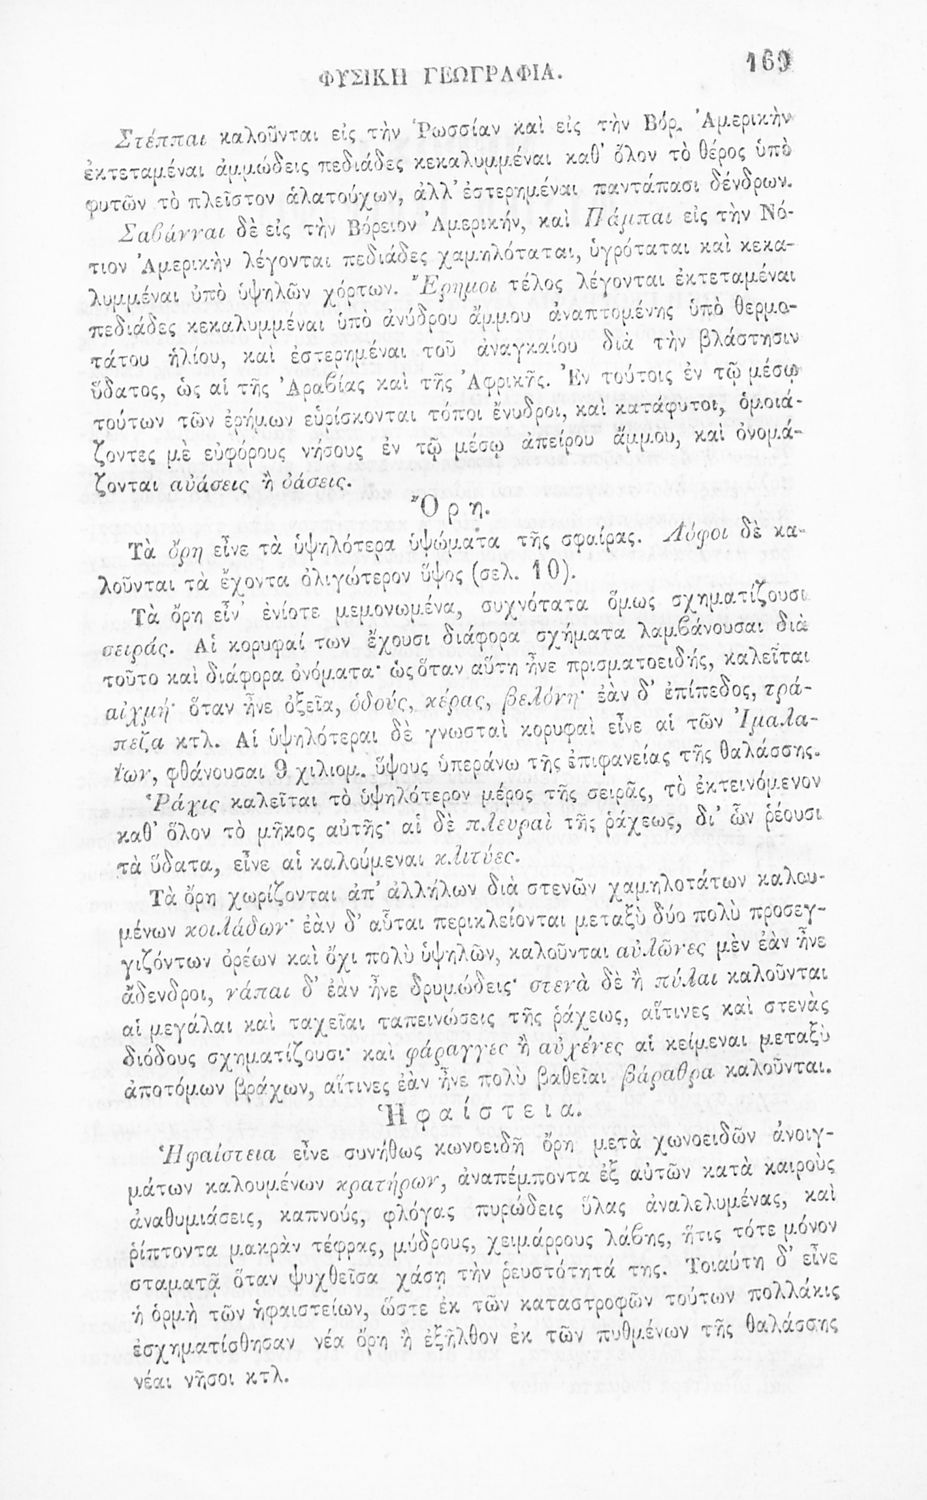 ΦΥΣΙΚΗ ΓΕΩΓΡΑΦΙΑ. 169
Στέππαι καλοῦνται εἰς τὴν Ῥωσσίαν καὶ εἰς τὴν Βόρ. Ἀμερικὴν
ἐκτεταμέναι ἀμμώδεις πεδιάδες κεκαλυμμέναι καθ' ὅλον τὸ θέρος ὑπὸ
φυτῶν τὸ πλεῖστον ἁλατούχων, ἀλλ' ἐστερημέναι παντάπασι δένδρων.
Σαβάνναι δὲ εἰς τὴν Βόρειον Ἀμερικήν, καὶ Πάμπαι εἰς τὴν Νό-
τιον Ἀμερικὴν λέγονται πεδιάδες χαμηλόταται, ὑγρόταται καὶ κεκα-
λυμμέναι ὑπὸ ὑψηλῶν χόρτων. Ἔρημοι τέλος λέγονται ἐκτεταμέναι
πεδιάδες κεκαλυμμέναι ὑπὸ ἀνύδρου ἄμμου ἀναπτομένης ὑπὸ θερμο-
τάτου ἡλίου, καὶ ἐστερημέναι τοῦ ἀναγκαίου διὰ τὴν βλάστησιν
ὕδατος, ὡς αἱ τῆς Ἀραβίας καὶ τῆς Ἀφρικῆς. Ἐν τούτοις ἐν τῷ μέσῳ
τούτων τῶν ἐρήμων εὑρίσκονται τόποι ἔνυδροι, καὶ κατάφυτοι, ὁμοιά-
ζοντες μὲ εὐφόρους νήσους ἐν τῷ μέσῳ ἀπείρου ἄμμου, καὶ ὀνομά-
ζονται αὐάσεις ἢ ὀάσεις.
Ὄρη.
Τὰ ὄρη εἶνε τὰ ὑψηλότερα ὑψώματα τῆς σφαίρας. Λόφοι δὲ κα-
λοῦνται τὰ ἔχοντα ὀλιγώτερον ὕψος (σελ. 10).
Τὰ ὄρη εἶν' ἐνίοτε μεμονωμένα, συχνότατα ὅμως σχηματίζουσι
σειράς. Αἱ κορυφαί των ἔχουσι διάφορα σχήματα λαμβάνουσαι διὰ
τοῦτο καὶ διάφορα ὀνόματα· ὡς ὅταν αὕτη ἦνε πρισματοειδής, καλεῖται
αἰχμή· ὅταν ἦνε ὀξεῖα, ὀδούς, κέρας, βελόνη· ἐὰν δ' ἐπίπεδος, τρά-
πεζα κτλ. Αἱ ὑψηλότεραι δὲ γνωσταὶ κορυφαὶ εἶνε αἱ τῶν Ἱμαλα-
ΐων, φθάνουσαι 9 χιλιομ. ὕψους ὑπεράνω τῆς ἐπιφανείας τῆς θαλάσσης.
Ῥάχις καλεῖται τὸ ὑψηλότερον μέρος τῆς σειρᾶς, τὸ ἐκτεινόμενον
καθ' ὅλον τὸ μῆκος αὐτῆς· αἱ δὲ πλευραὶ τῆς ῥάχεως, δι' ὧν ῥέουσι
τὰ ὕδατα, εἶνε αἱ καλούμεναι κλιτύες.
Τὰ ὄρη χωρίζονται ἀπ' ἀλλήλων διὰ στενῶν χαμηλοτάτων καλου-
μένων κοιλάδων· ἐὰν δ' αὗται περικλείονται μεταξὺ δύο πολὺ προσεγ-
γιζόντων ὀρέων καὶ ὄχι πολὺ ὑψηλῶν, καλοῦνται αὐλῶνες μὲν ἐὰν ἦνε
ἄδενδροι, νάπαι δ' ἐὰν ἦνε δρυμώδεις· στενὰ δὲ ἢ πύλαι καλοῦνται
αἱ μεγάλαι καὶ ταχεῖαι ταπεινώσεις τῆς ῥάχεως, αἵτινες καὶ στενὰς
διόδους σχηματίζουσι· καὶ φάραγγες ἢ αὐχένες αἱ κείμεναι μεταξὺ
ἀποτόμων βράχων, αἵτινες ἐὰν ἦνε πολὺ βαθεῖαι βάραθρα καλοῦνται.
Ἡφαίστεια.
Ἡφαίστεια εἶνε συνήθως κωνοειδῆ ὄρη μετὰ χωνοειδῶν ἀνοιγ-
μάτων καλουμένων κρατήρων, ἀναπέμποντα ἐξ αὐτῶν κατὰ καιροὺς
ἀναθυμιάσεις, καπνούς, φλόγας πυρώδεις ὕλας ἀναλελυμένας, καὶ
ῥίπτοντα μακρὰν τέφρας, μύδρους, χειμάρρους λάβης, ἥτις τότε μόνον
σταματᾷ ὅταν ψυχθεῖσα χάσῃ τὴν ῥευστότητά της. Τοιαύτη δ' εἶνε
ἡ ὁρμὴ τῶν ἡφαιστείων, ὥστε ἐκ τῶν καταστροφῶν τούτων πολλάκις
ἐσχηματίσθησαν νέα ὄρη ἢ ἐξῆλθον ἐκ τῶν πυθμένων τῆς θαλάσσης
νέαι νῆσοι κτλ.